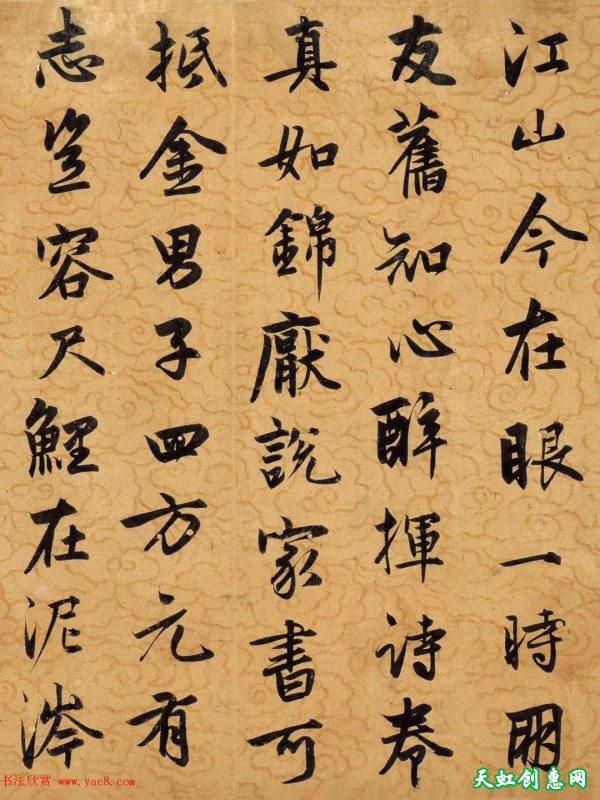 江山今在眼一時朋
友舊知心醉揮詩卷
真如錦厭說家書可
抵金男子四方元有
志豈容尺鯉在泥涔
书法欣赏 www.yac8.com
天虹创惠网